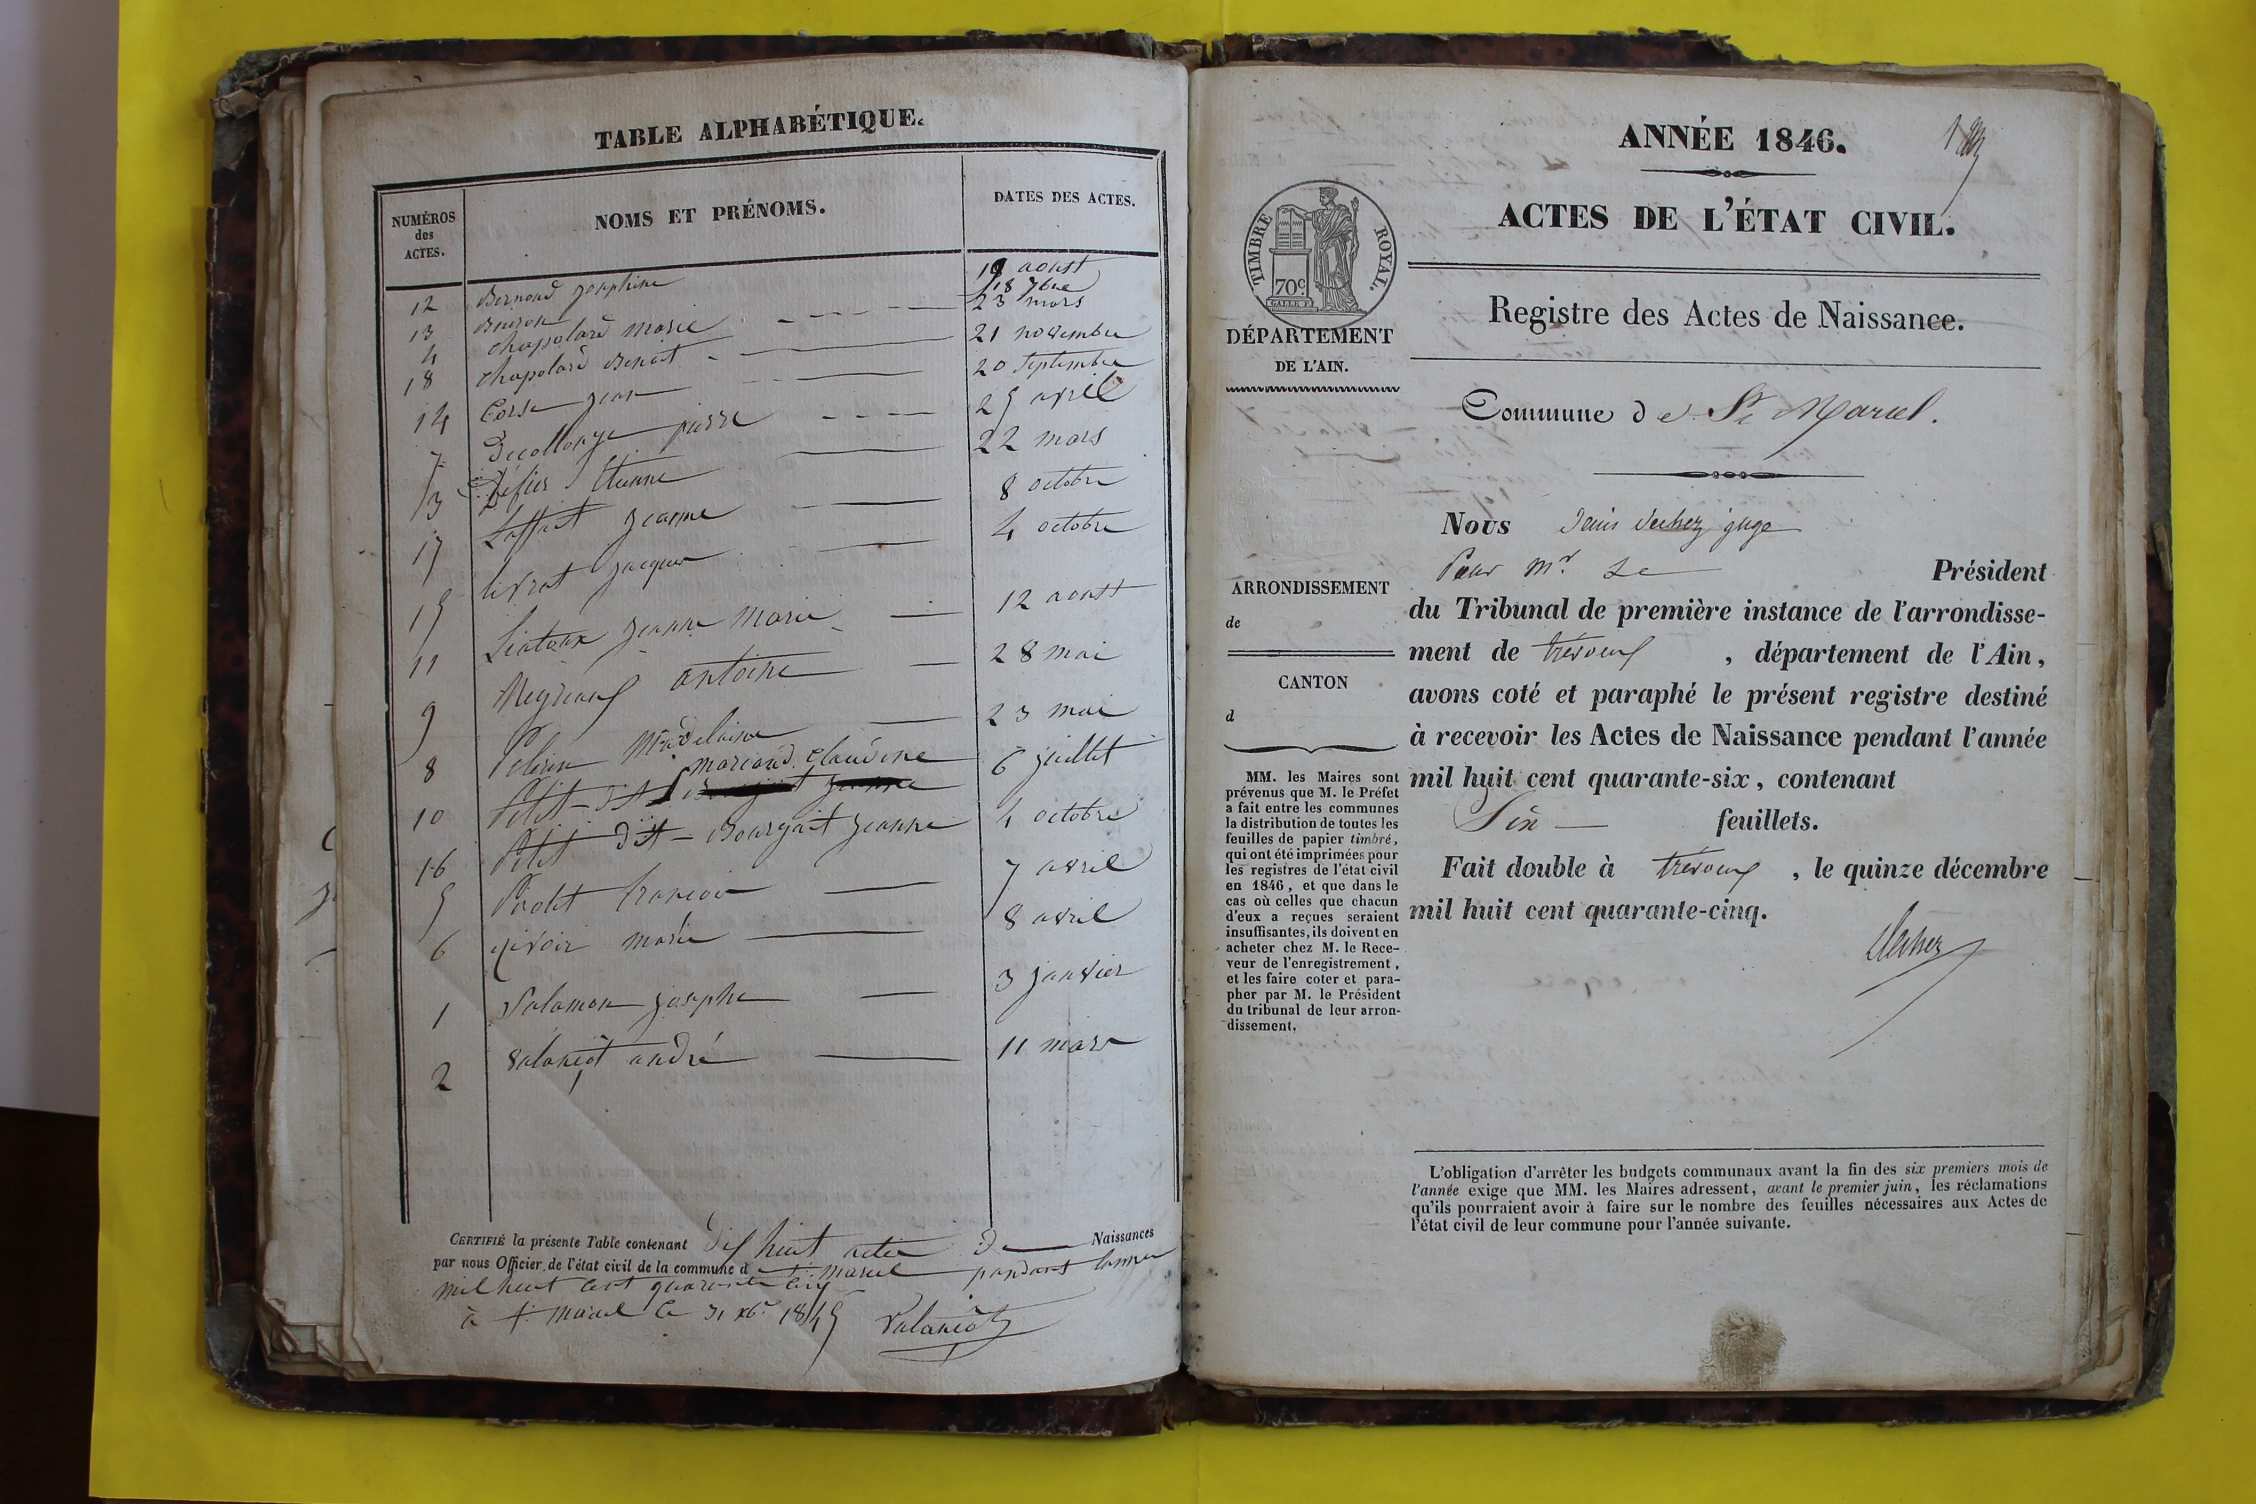 TABLE ALPHABÉTIQUE.
NUMÉROS des ACTES.
NOMS ET PRÉNOMS.
DATES DES ACTES.
12 Bernard josephine 19 aoust
13 18 7bre
4 chapolard marie 23 mars
18 chapolard Benoit 21 novembre
14 Corse jean 20 Septembre
7 Decollonge pierre 25 avril
3 Etienne 22 mars
17 Laffait jeanne 8 octobre
15 livrat jacques 4 octobre
11 jeanne Marie 12 aoust
9 antoine 28 mai
8 Madelaine 23 mai
10 Petit-dit mariand Claudine 6 juillet
16 Petit dit Bourgait jeanne 4 octobre
5 françois 7 avril
6 marie 8 avril
1 Salamon josephe 3 janvier
2 Valanciot andré 11 mars
CERTIFIÉ la présente Table contenant dix huit actes De Naissances
par nous Officier de l'état civil de la commune d St marcel pendant lannee
mil huit cent quarante cinq
à St marcel le 31 xbre 1845 Valanciot
ANNÉE 1846.
ACTES DE L'ÉTAT CIVIL.
TIMBRE ROYAL.
70c.
DÉPARTEMENT
DE L'AIN.
Registre des Actes de Naissance.
Commune de St Marcel.
ARRONDISSEMENT
de
CANTON
d
MM. les Maires sont
prévenus que M. le Préfet
a fait entre les communes
la distribution de toutes les
feuilles de papier timbré,
qui ont été imprimées pour
les registres de l'état civil
en 1846, et que dans le
cas où celles que chacun
d'eux a reçues seraient
insuffisantes, ils doivent en
acheter chez M. le Rece-
veur de l'enregistrement,
et les faire coter et para-
pher par M. le Président
du tribunal de leur arron-
dissement.
Nous juge
Pour Mr. Le Président
du Tribunal de première instance de l'arrondisse-
ment de trévoux, département de l'Ain,
avons coté et paraphé le présent registre destiné
à recevoir les Actes de Naissance pendant l'année
mil huit cent quarante-six, contenant
Six feuillets.
Fait double à trévoux, le quinze décembre
mil huit cent quarante-cinq.
L'obligation d'arrêter les budgets communaux avant la fin des six premiers mois de
l'année exige que MM. les Maires adressent, avant le premier juin, les réclamations
qu'ils pourraient avoir à faire sur le nombre des feuilles nécessaires aux Actes de
l'état civil de leur commune pour l'année suivante.